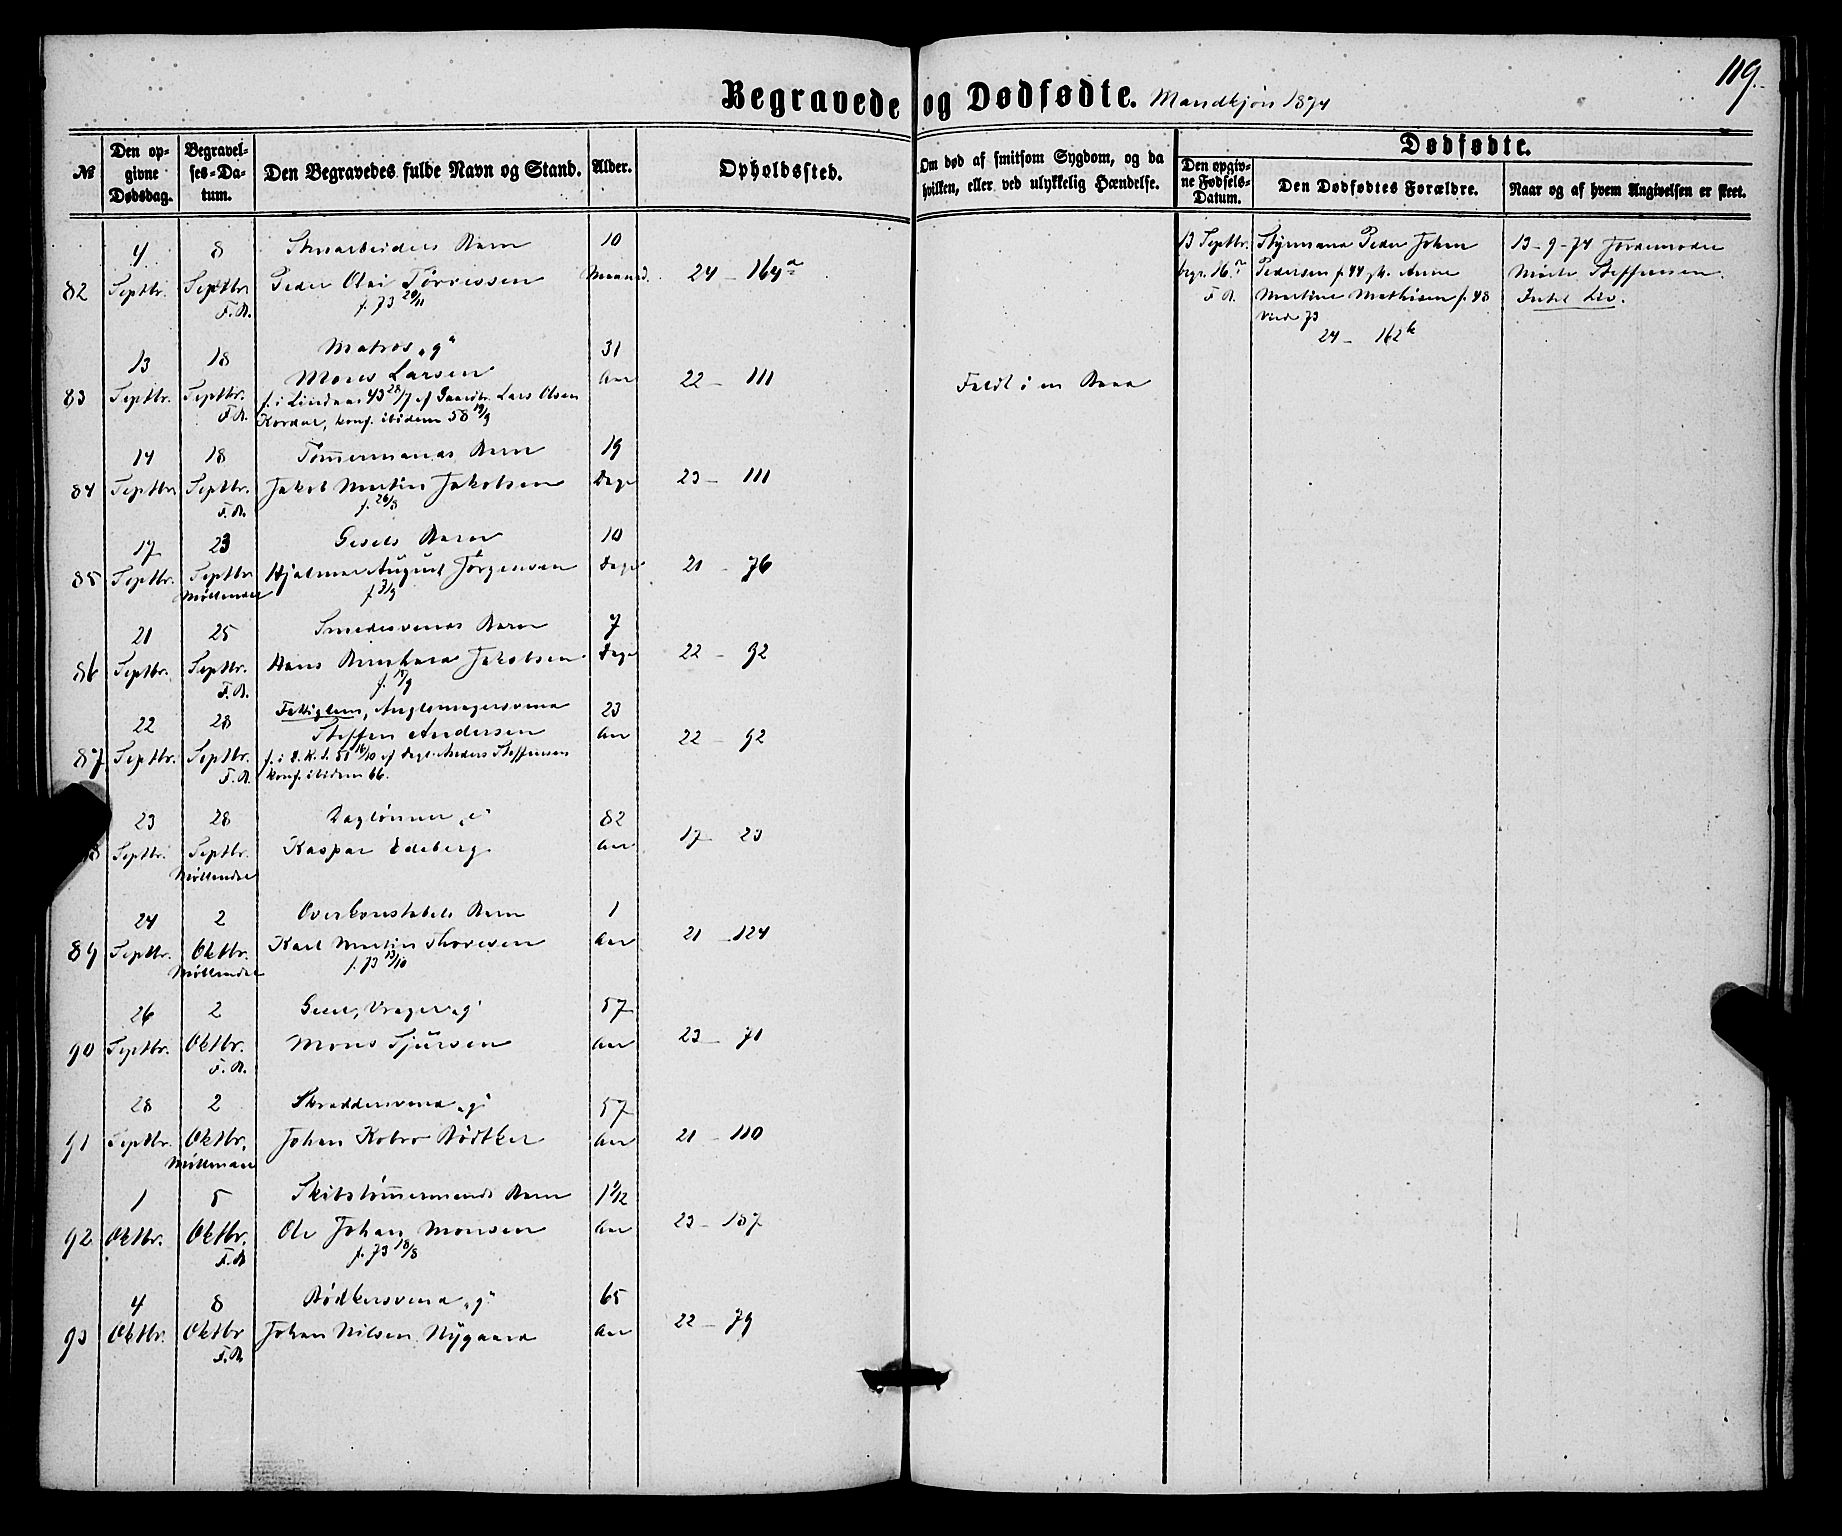 119.
Begravede og Dødfødte. Mandkjøn 1874
№
Den opgivne Dødsdag.
Begravelses-Datum.
Den Begravedes fulde Navn og Stand.
Alder.
Opholdssted.
Om død af smitsom Sygdom, og da hvilken, eller ved ulykkelig Hændelse.
Dødfødte.
Den opgivne Fødsels-Datum.
Den Dødfødtes Forældre.
Naar og af hvem Angivelsen er skeet.
4 8 Barn 10
82 Septbr. Septbr. Peder Olai Maaned. 24 - 164a
F.B. f. 73 20/11
13 Septbr. Styrmand Peder Johan 13-9-74 Jordemoder
begr. 16. Pedersen f. 44 Steffensen.
F.B. Martine Mathisen f. 48 Intet Liv.
73
24 - 162b
13 18 Matros „g“ 31
83 Septbr. Septbr. Mons Larsen Aar 22 - 111 Faldt i en Baad
F.B. f. i Lindaas 43 28/7 af Gaardbr. Lars Olsen
konf. ibidem 58 19/9
14 18 Tømmermands Barn 19
84 Septbr. Septbr. Jakob Martin Jakobsen Dage 23 - 111
F.B. f. 26/8
17 23 Barn 10
85 Septbr. Septbr. Hjalmar August Jørgensen Dage 21 - 76
Møllendal
21 25 Smedesvends Barn 7
86 Septbr. Septbr. Hans Bernhard Jakobsen Dage 22 - 92
F.B.
22 28 Fattiglem, 23
87 Septbr. Septbr. Steffen Andersen Aar 22 - 92
F.B. f. i D. K. S. 51 16/10 af Anders Steffensen
konf. ibidem 66.
23 28 Daglønner „e“ 82
Septbr. Septbr. Kaspar Edeberg Aar 17 - 23
Møllendal
24 2 Overkonstabels Barn 1
89 Septbr. Oktbr. Karl Martin Thoresen Aar 21 - 124
Møllendal f. 73 13/10
26 2 Vrager „g“ 57
90 Septbr. Oktbr. Mons Sjursen Aar 23 - 71
F.B.
28 2 Skræddersvend „g“ 57
91 Septbr. Oktbr. Johan Kobro Bødtker Aar 21 - 110
Møllendal
1 5 Skibstømmermands Barn 1 1/12
92 Oktbr. Oktbr. Ole Johan Monsen Aar 23 - 157
F.B. f. 73 18/8
4 8 Bødkersvend „g“ 65
93 Oktbr. Oktbr. Johan Nilsen Nygaard Aar 22 - 79
F.B.